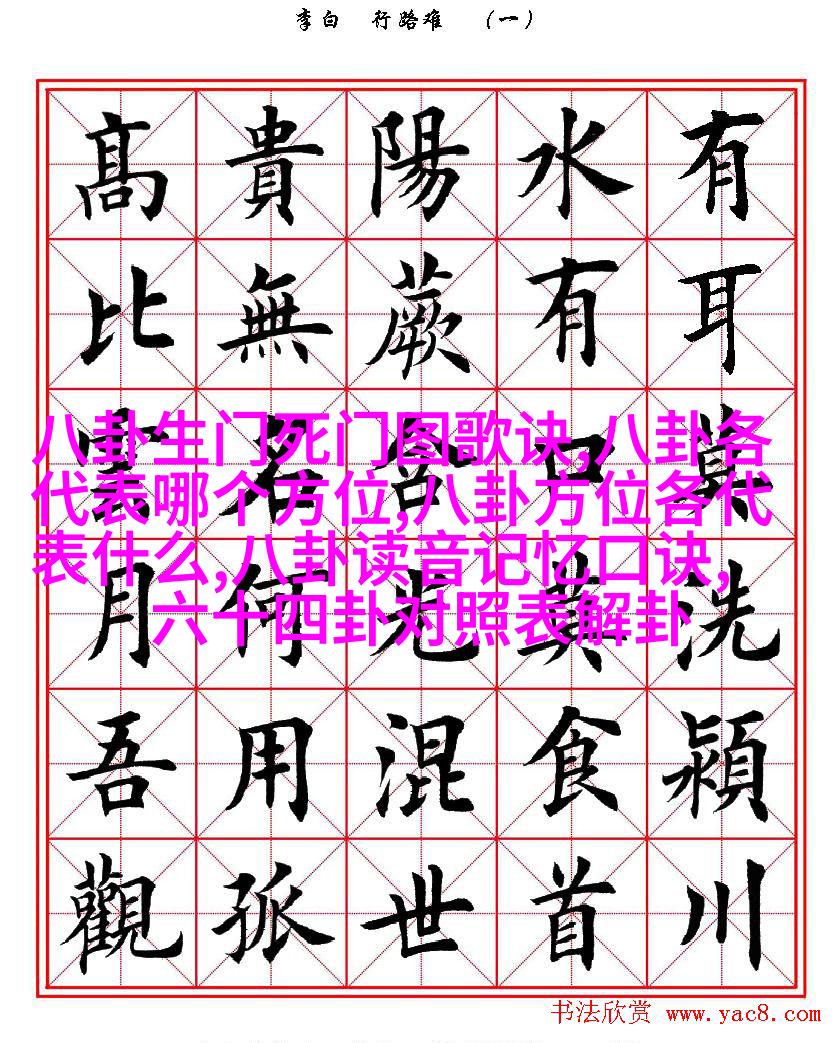 李白 行路难 （一）
有耳莫洗潁川
水有口莫食首
陽蕨含光混世
貴無名何用孤
髙比雲月吾觀
八卦生门死门图歌诀,八卦各
代表哪个方位,八卦方位各代
表什么,八卦读音记忆口诀,
六十四卦对照表解卦
书法欣赏 www.yac8.com